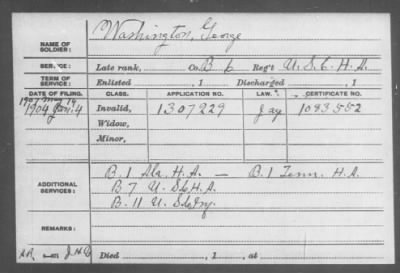 NAME OF SOLDIER: Washington, George
SERVICE: Late rank, Co. B 6 Reg't U.S.C.H.A.
TERM OF SERVICE: Enlisted , 1 Discharged , 1
DATE OF FILING. CLASS. APPLICATION NO. LAW. CERTIFICATE NO.
1907 May 14
1904 Jan. 4 Invalid, 1307229 Jay 1083552
Widow,
Minor,
ADDITIONAL SERVICES: B. 1 Ala. H.A. — B. 1 Tenn. H.A.
B 7 U.S.C.H.A.
B. 11 U.S.C.Inf.
REMARKS:
Died , 1 , at